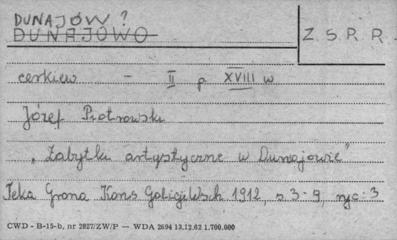 DUNAJÓW?
DUNAJOWO
Z S R R
cerkiew - II p XVIII w
Józef Piotrowski
"Zabytki artystyczne w Dunajowie"
Teka Grona Kons Galicji Wsch 1912, s 3-9, ryc. 3
CWD - B-15-b, nr 2827/ZW/P — WDA 2694 13.12.62 1.700.000